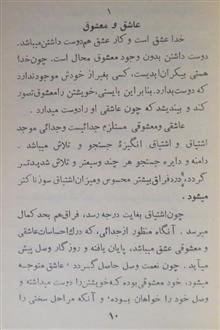 ۱
عاشق و معشوق
خدا عشق است و کار عشق هم دوست داشتن میباشد.
دوست داشتن بدون وجود معشوق محال است. چون خدا
هستی بیکران ابدیست، کسی بغیر از خودش موجود ندارد
که دوست بدارد. بنابر این بایستی، خویشتن را معشوق تصور
کرده و بیندیشد که چون عاشقی او را دوست میدارد.
عاشقی و معشوقی مستلزم جدائیست وجدائی موجد
اشتیاق و اشتیاق انگیزهٔ جستجو و تلاش میباشد.
دامنه و دایره جستجو هر چند وسیعتر و تلاش شدیدتر
گردد، درد فراق بیشتر محسوس ومیزان اشتیاق سوزناکتر
میشود.
چون اشتیاق بغایت درجه رسد، فراق هم بحد کمال
میرسد. آنگاه منظور از جدائی، که درک احساسات عاشقی
و معشوقی عشق میباشد، پایان یافته و روزگار وصل پیش
میآید. چون نعمت وصل حاصل گردد، عاشق متوجه
میشود، خود معشوقی بوده که خویشتن را دوست میداشته و
وصل خود را خواهان بوده، و آنکه مراحل سختی را
۱۰